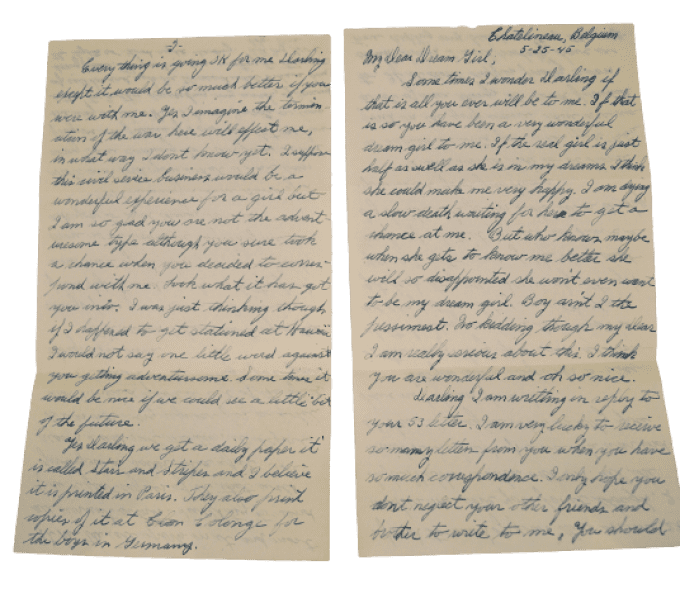 3.
Every thing is going OK for me Darling
except it would be so much better if you
were with me. Yes I imagine the termin-
ation of the war here will effect me,
in what way I dont know yet. I suppose
this civil service business would be a
wonderful experience for a girl but
I am so glad you are not the advent-
uresome type although you sure took
a chance when you decided to corres-
pond with me. Look what it has got
you into. I was just thinking though
if I happened to get stationed at Hawaii
I would not say one little word against
you getting adventuresome. Some times it
would be nice if we could see a little bit
of the future.
Yes Darling we get a daily paper it
is called Stars and Stripes and I believe
it is printed in Paris. They also print
copies of it at Cologne for
the boys in Germany.
Chatelineau, Belgium
5-25-45
My Dear Dream Girl,
Some times I wonder Darling if
that is all you ever will be to me. If that
is so you have been a very wonderful
dream girl to me. If the real girl is just
half as swell as she is in my dreams I think
she could make me very happy. I am dying
a slow death waiting for her to get a
chance at me. But who knows maybe
when she gets to know me better she
will so disappointed she won't even want
to be my dream girl. Boy ain't I the
pessimest. No kidding though my dear
I am really serious about this. I think
you are wonderful and oh so nice.
Darling I am writting in reply to
your 53 letter. I am very lucky to receive
so many letters from you when you have
so much correspondence. I only hope you
don't neglect your other friends and
bother to write to me, You should